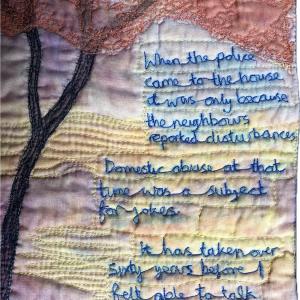 When the police
came to the house
it was only because
the neighbours
reported disturbances
Domestic abuse at that
time was a subject
for jokes.
It has taken over
sixty years before I
felt able to talk